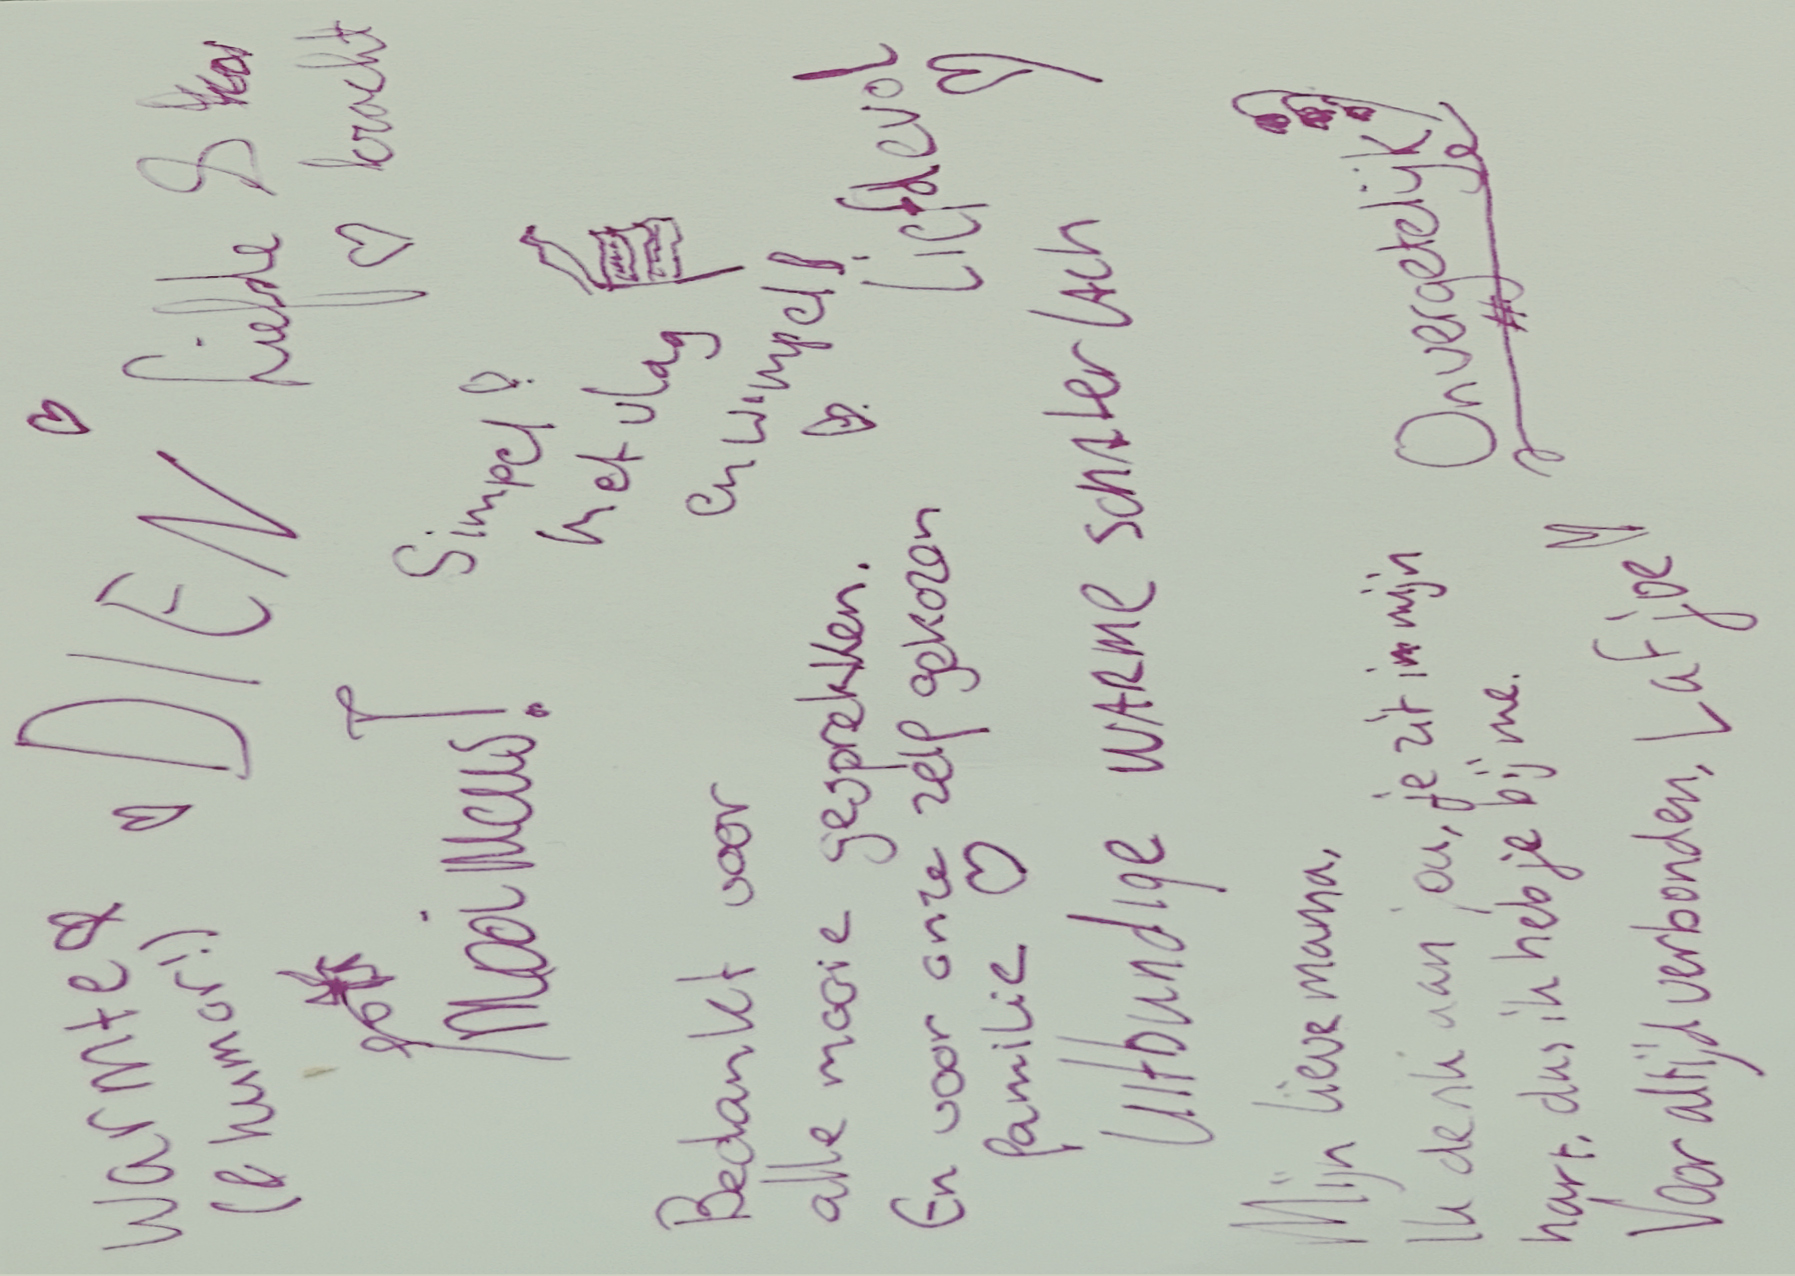 Warmte
(& humor!)
DIEN
Liefde &
kracht
Mooi Mens!
Simpel!
met vlag
en wimpel!
Liefdevol
Bedankt voor
alle mooie gesprekken.
En voor onze zelf gekozen
familie
Uitbundige WARME SCHATERLACH
Mijn lieve mama,
Ik denk aan jou, je zit in mijn
hart. dus ik heb je bij me.
Voor altijd verbonden, Lafijoe
Onvergetelijk